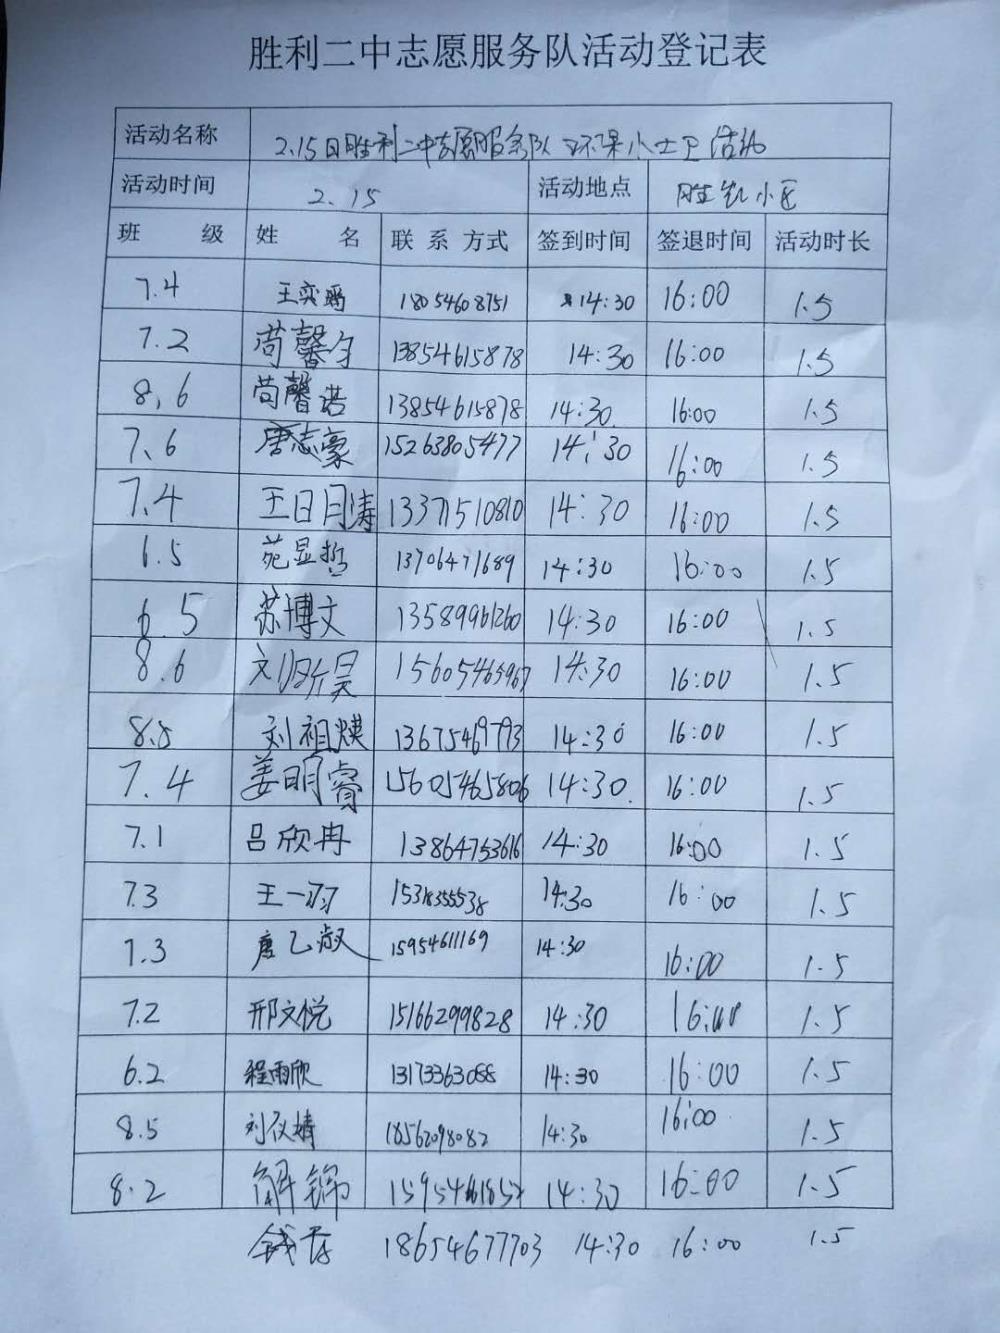 胜利二中志愿服务队活动登记表
活动名称 2.15日胜利二中志愿服务队环保小士卫活动
活动时间 2.15 活动地点 胜凯小区
班 级 姓 名 联系方式 签到时间 签退时间 活动时长
7.4 王奕 18054608751 14:30 16:00 1.5
7.2 苘馨匀 13854615878 14:30 16:00 1.5
8.6 苘馨诺 13854615878 14:30 16:00 1.5
7.6 唐志豪 15263805477 14:30 16:00 1.5
7.4 王日月涛 13371510810 14:30 16:00 1.5
6.5 苑显哲 13706471689 14:30 16:00 1.5
6.5 苏博文 13589961260 14:30 16:00 1.5
8.6 刘昕昊 15605465967 14:30 16:00 1.5
8.5 刘祖煐 13675469793 14:30 16:00 1.5
7.4 姜明睿 15605465806 14:30 16:00 1.5
7.1 吕欣冉 13864753616 14:30 16:00 1.5
7.3 王一羽 15318355538 14:30 16:00 1.5
7.3 唐乙淑 15954611169 14:30 16:00 1.5
7.2 邢文悦 15166299828 14:30 16:00 1.5
6.2 程雨欣 13173363088 14:30 16:00 1.5
8.5 刘仪婧 18562098082 14:30 16:00 1.5
8.2 解锦 14:30 16:00 1.5
钱 18654677703 14:30 16:00 1.5